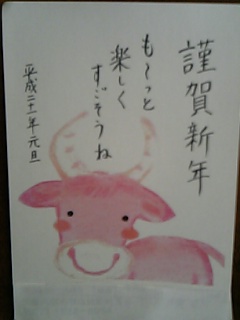 謹賀新年
も〜っと
楽しく
すごそうね
平成二十一年元旦